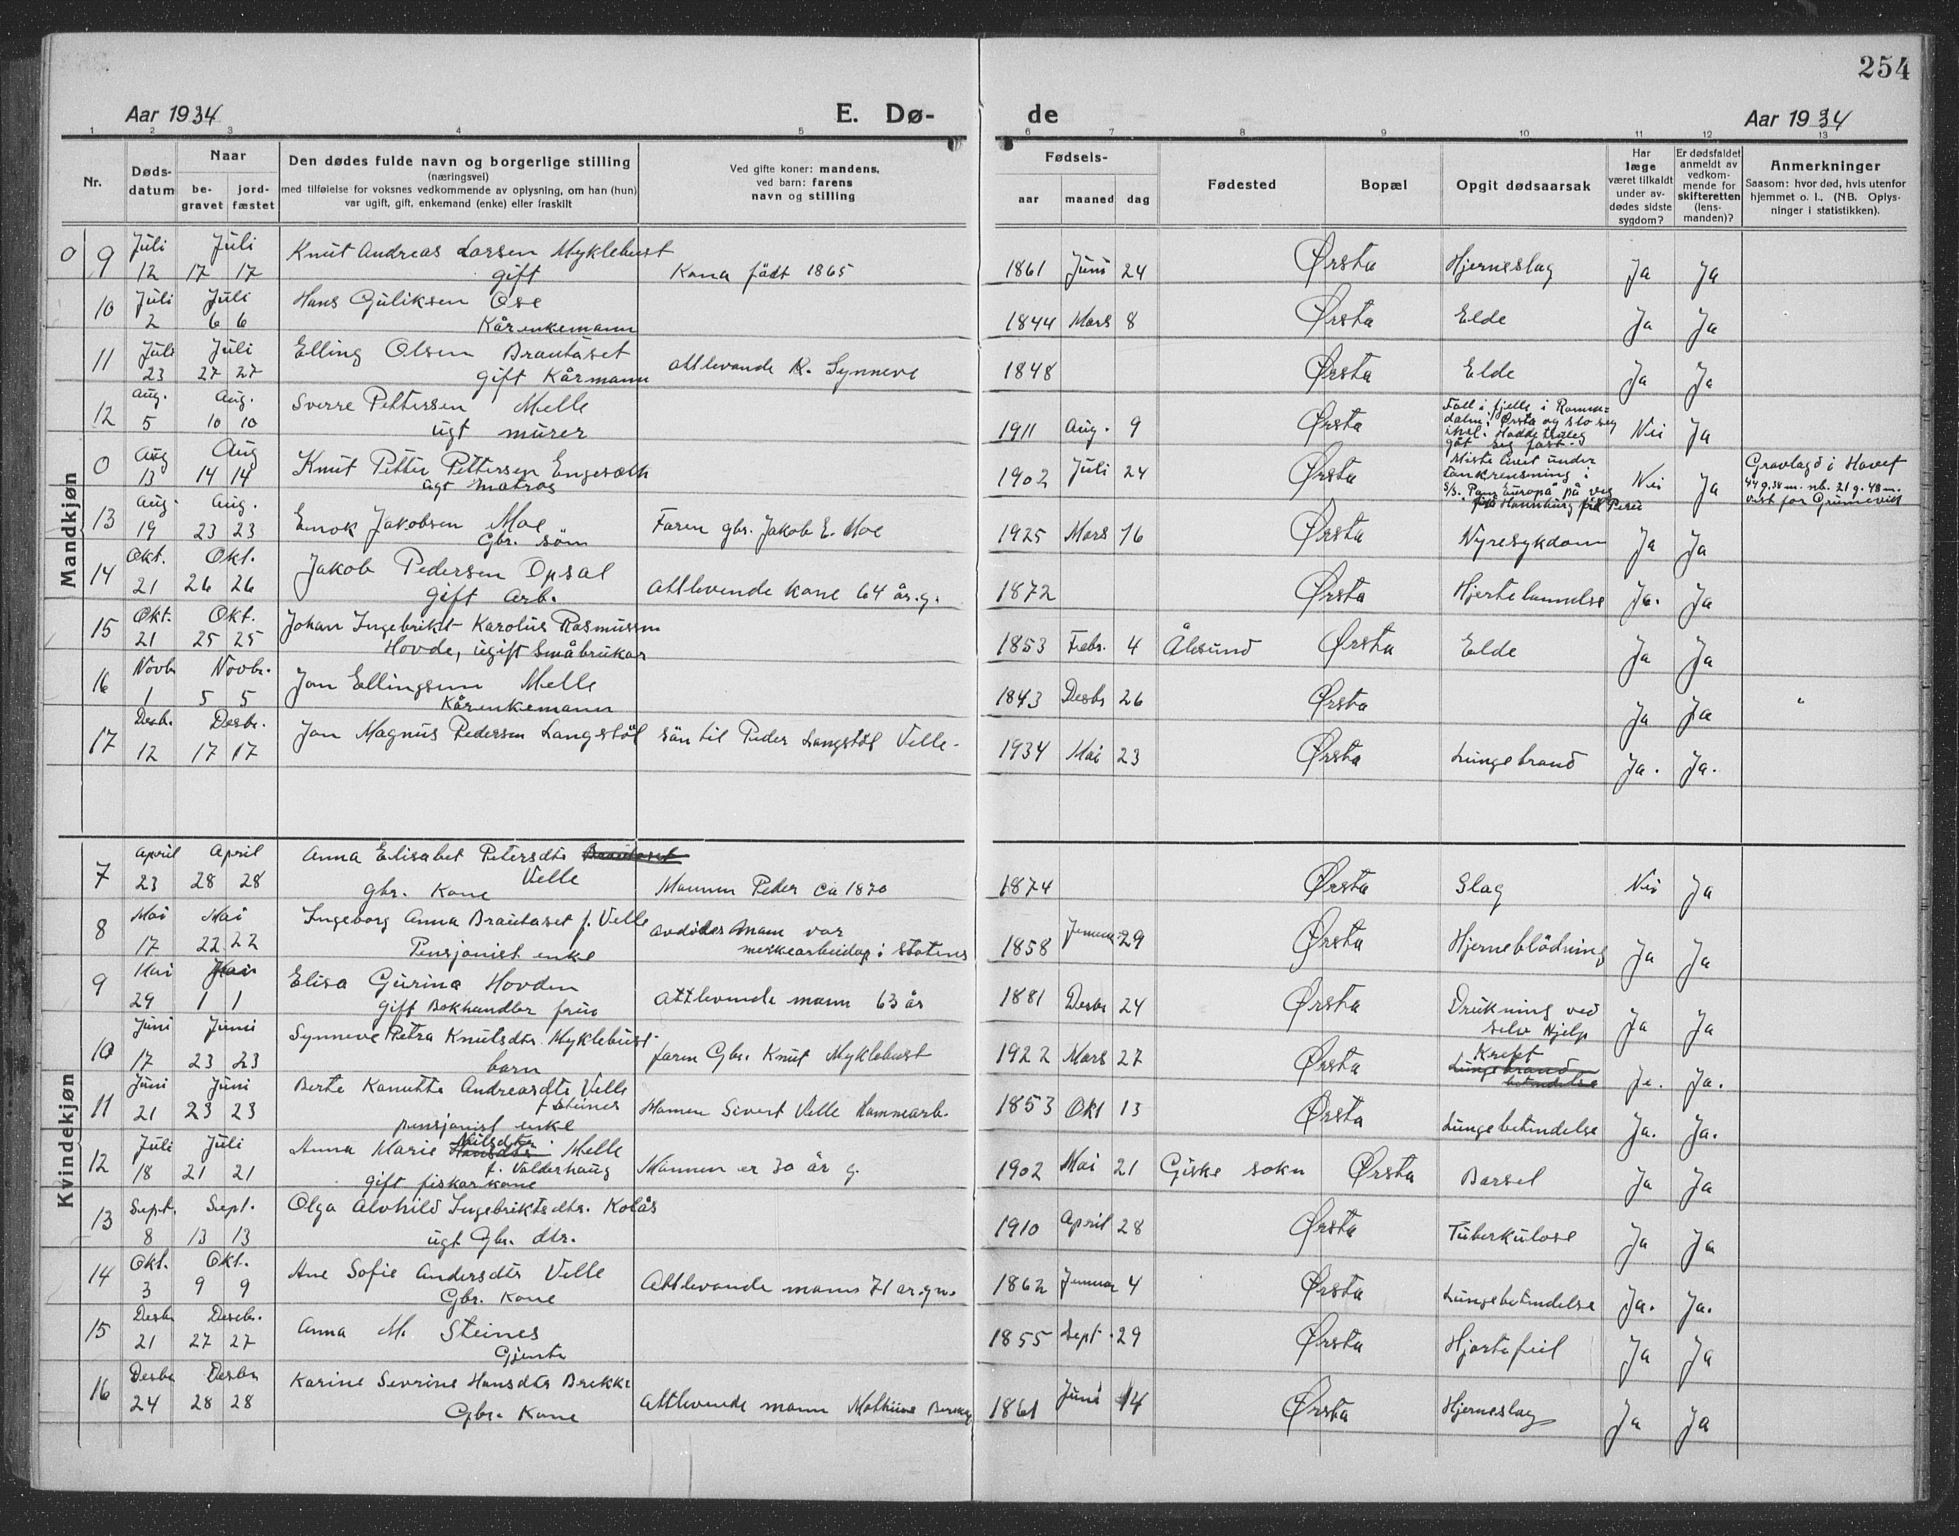 254
Aar 1934 E. Dø- de Aar 1934
1 2 3 4 5 6 7 8 9 10 11 12 13
Nr.
Døds-
datum
Naar
be-
gravet
jord-
fæstet
Den dødes fulde navn og borgerlige stilling
(næringsvei)
med tilføielse for voksnes vedkommende av oplysning, om han (hun)
var ugift, gift, enkemand (enke) eller fraskilt
Ved gifte koner: mandens,
ved barn: farens
navn og stilling
Fødsels-
aar maaned dag
Fødested
Bopæl
Opgit dødsaarsak
Har
læge
været tilkaldt
under av-
dødes sidste
sygdom?
Er dødsfaldet
anmeldt av
vedkom-
mende for
skifteretten
(lens-
manden)?
Anmerkninger
Saasom: hvor død, hvis utenfor
hjemmet o. l., (NB. Oplys-
ninger i statistikken).
Mandkjøn
0 9 Juli Juli Knut Andreas Larsen Myklebust
12 17 17 gift Kona födt 1865 1861 Juni 24 Ørsta Hjerneslag Ja Ja
10 Juli Juli Hans Guliksen Ose
2 6 6 Kårenkemann 1844 Mars 8 Ørsta Elde Ja Ja
11 Juli Juli Elling Olsen Brautaset
23 27 27 gift Kårmann attlevande K. Synneve 1848 Ørsta Elde Ja Ja
12 Aug. Aug. Sverre Pettersen Melle
5 10 10 ugt murer 1911 Aug. 9 Ørsta Fall i fjelle i Romm=
dalen, Ørsta og slo seg
ihel. Hadde truleg
gåt seg fast.
Nei Ja
0 Aug Aug Knut Petter Pettersen Engeseth
13 14 14 ugt matros 1902 Juli 24 Ørsta Miste livet under
tankrensning i
S/S. Pan Europa på veg
frå Hamburg til Peru
Nei Ja
Gravlagd i Havet
44 g. 38 m. nb. 21 g. 48 m.
vest for Grunevich
13 Aug. Aug. Enok Jakobsen Moe
19 23 23 Gbr. sönn Faren gbr. Jakob E. Moe 1925 Mars 16 Ørsta Nyresykdom Ja Ja
14 Okt. Okt. Jakob Pedersen Opsal
21 26 26 gift Arb. Attlevende kone 64 år. g. 1872 Ørsta Hjertelammelse Ja. Ja
15 Okt. Okt. Johan Ingebrikt Karolus Rasmussen
21 25 25 Hovde, ugift Småbrukar 1853 Febr. 4 Ålesund Ørsta Elde Ja Ja
16 Novb. Novbr. Jon Ellingsen Melle
1 5 5 Kårenkemann 1843 Desbr 26 Ørsta Ja Ja
17 Desb. Desbr. Jon Magnus Pedersen Langstöl sön til Peder Langstöl Velle.
12 17 17 1934 Mai 23 Ørsta Lungebrand Ja. Ja.
Kvindekjøn
7 April April Anna Elisabet Petersdtr Brautaset
Velle
23 28 28 gbr. Kone Mannen Peder ca 1870 1874 Ørsta Slag Nei Ja
8 Mai Mai Ingeborg Anna Brautaset f. Velle
17 22 22 Pensjonist enke avdödes mann var
merkearbeidar i statens 1858 Januar 29 Ørsta Hjerneblödning Ja Ja
9 Mai Elisa Gurina Hovden
29 1 1 gift Bokhandler frue Attlevende mann 63 år 1881 Desbr 24 Ørsta Drukning ved
selv Hjelp Ja Ja
10 Juni Juni Synneve Petra Knutsdtr. Myklebust
17 23 23 barn faren Gbr. Knut Myklebust 1922 Mars 27 Ørsta Kreft
Lungebrand
betendelse
Ja. Ja.
11 Juni Juni Berte Kanutte Andreasdtr Velle
f Steines
21 23 23 pensjonist enke Mannen Sivert Velle Hammarb. 1853 Okt 13 Ørsta Lungebetendelse Ja. Ja.
12 Juli Juli Anna Marie Nilsdtr. Hansdtr Melle
f. Valderhaug
18 21 21 gift fiskarkone Mannen er 30 år g. 1902 Mai 21 Giske sokn Ørsta Barsel Ja Ja
13 Sept. Sept. Olga Alvhild Ingebriktsdtr. Kolås
8 13 13 ugt Gbr. dtr. 1910 April 28 Ørsta Tuberkulose Ja Ja
14 Okt. Okt. Ane Sofie Andersdtr Velle
3 9 9 Gbr. Kone Attlevande mann 71 ar. gm. 1862 Januar 4 Ørsta Lungebetendelse Ja. Ja.
15 Desbr Desebr. Anna M. Steines
21 27 27 Gjente 1855 Sept. 29 Ørsta Hjartefeil Ja Ja
16 Desbr Desbr Karine Sevrine Hansdtr Brekke
24 28 28 Gbr. Kone Attlevende mann Mathias 1861 Juni 14 Ørsta Hjerneslag Ja Ja